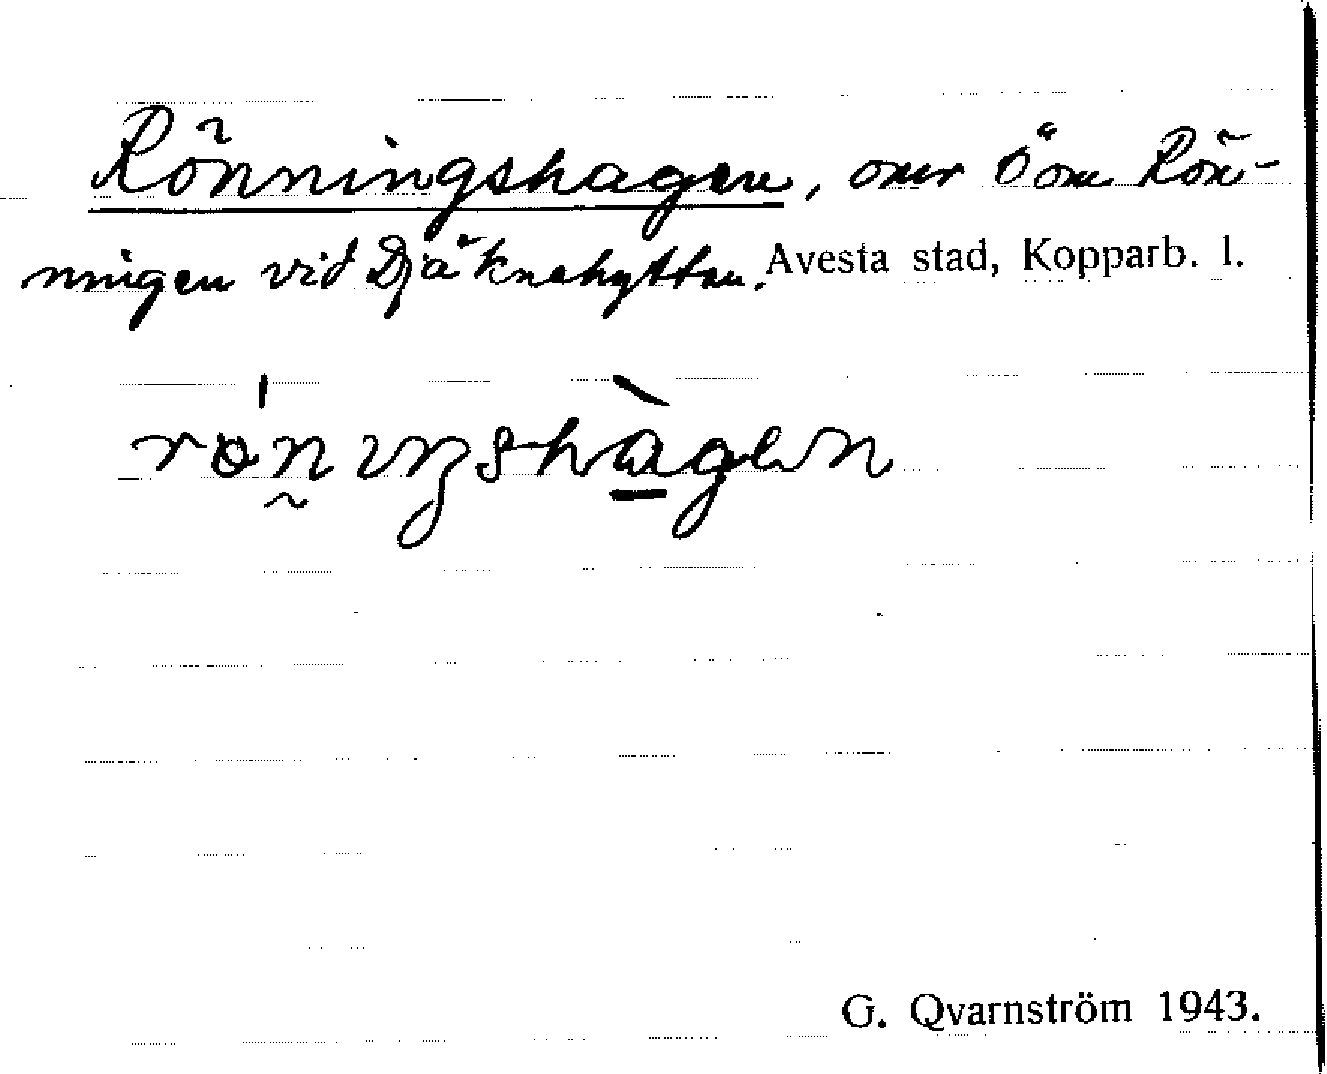 Rönningshagen, omr Ö om Rön-
ningen vid Djäknehyttan. Avesta stad, Kopparb. l.
G. Qvarnström 1943.